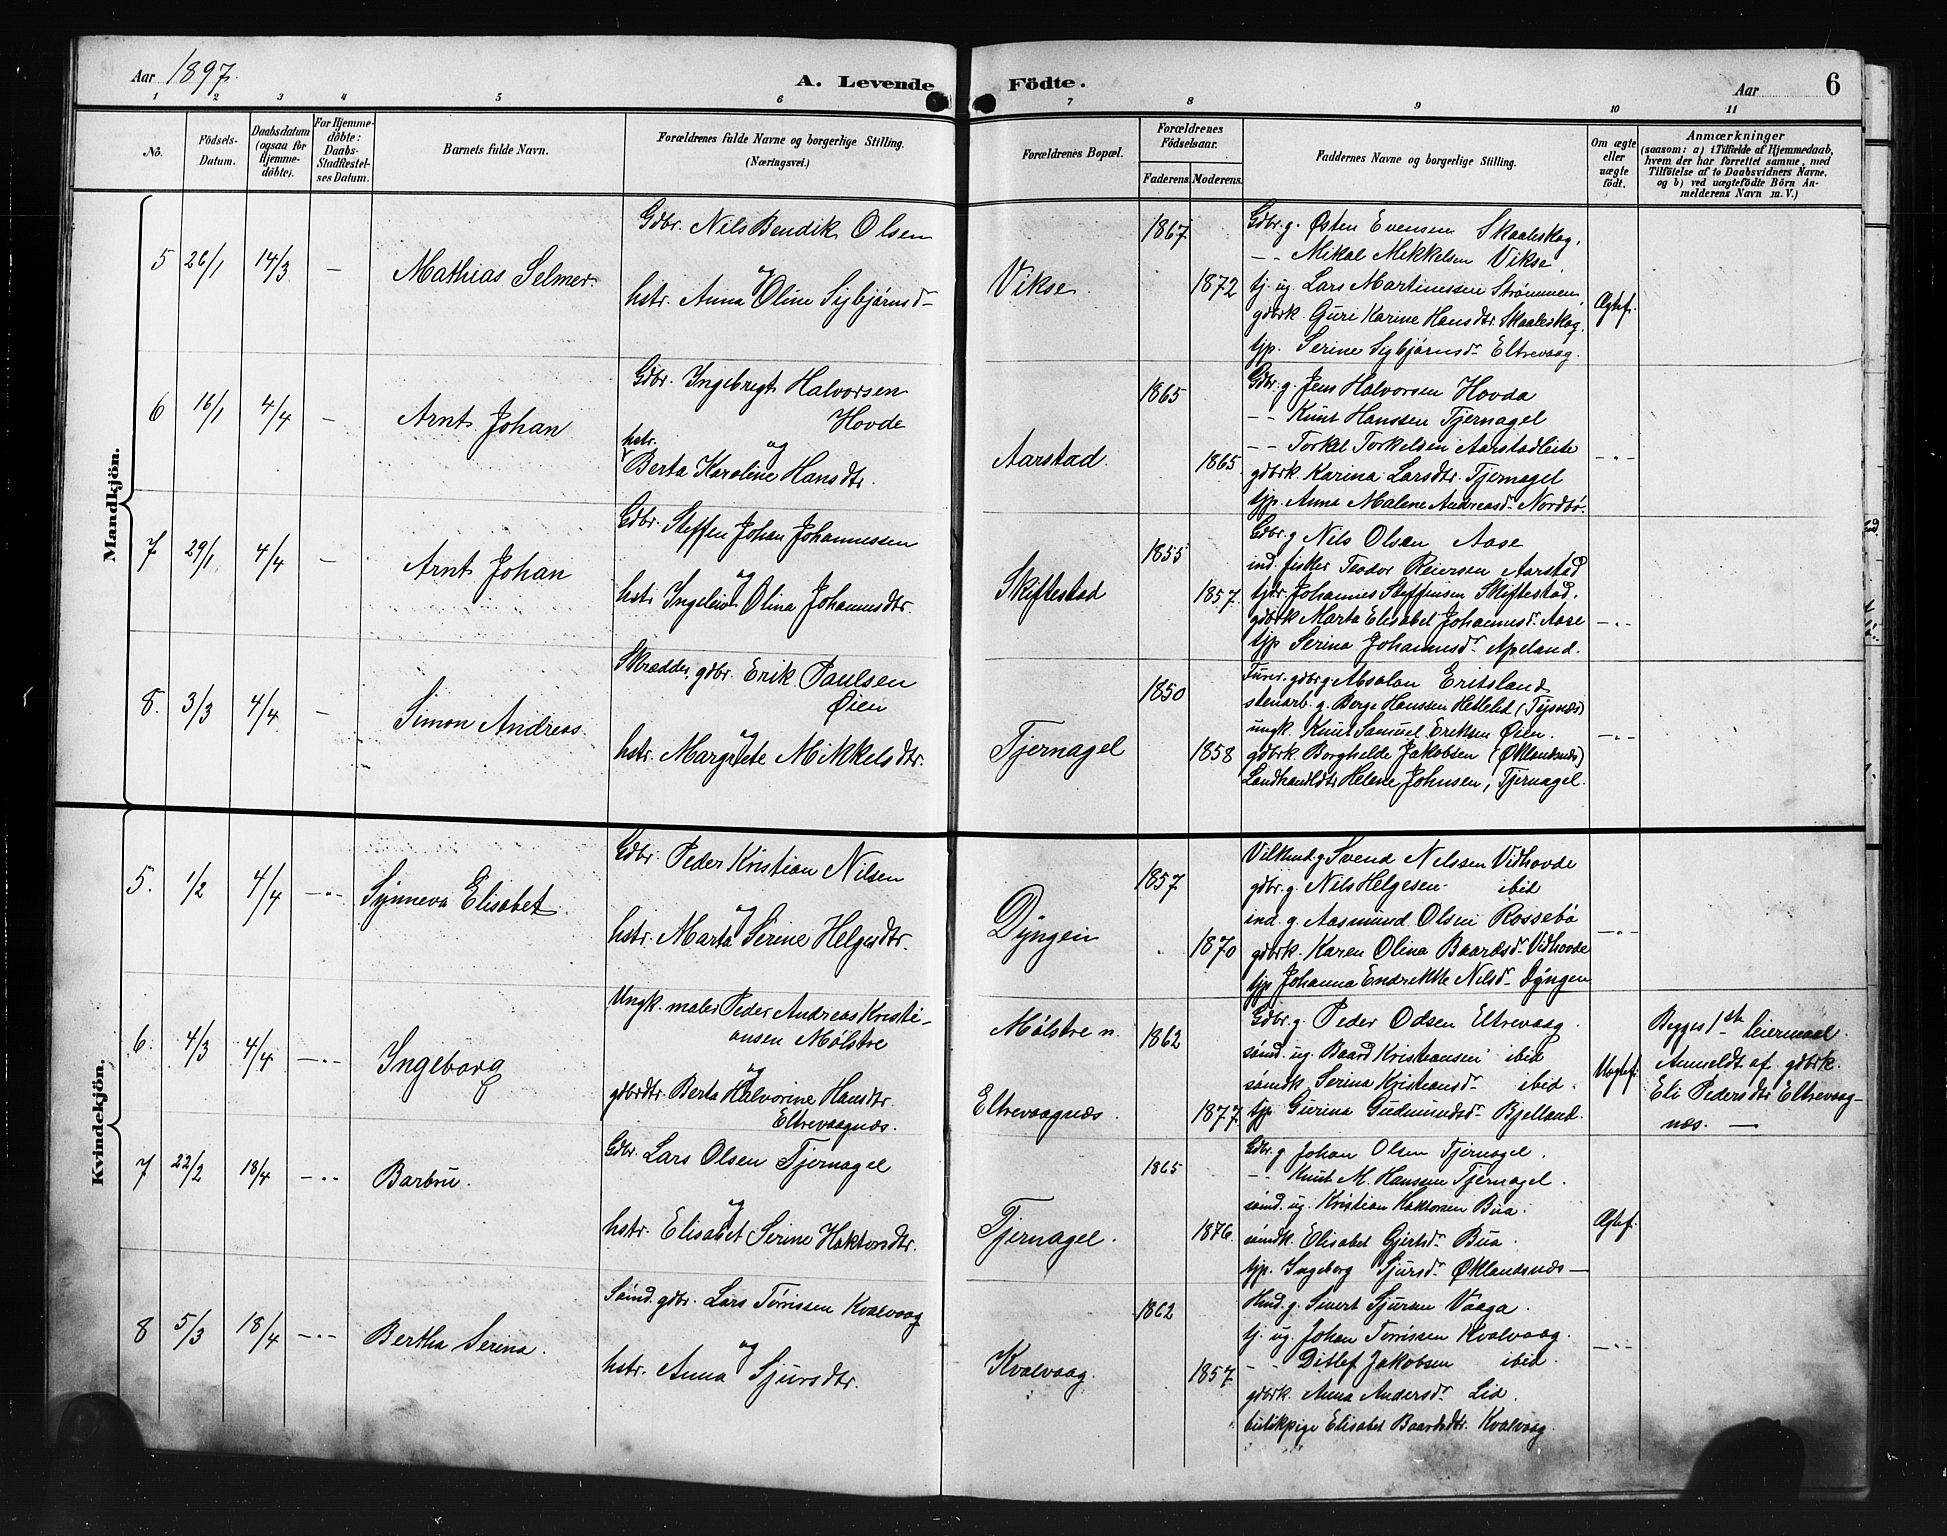 Aar 1897. A. Levende Födte. Aar 6
1 2 3 4 5 6 7 8 9 10 11
No. Födsels-Datum. Daabsdatum (ogsaa for Hjemmedöbte). For Hjemmedöbte: Daabs-Stadfestelses Datum. Barnets fulde Navn. Forældrenes fulde Navne og borgerlige Stilling. (Næringsvei.) Forældrenes Bopæl. Forældrenes Födselsaar. Faderens Moderens. Faddernes Navne og borgerlige Stilling. Om ægte eller uægte födt. Anmærkninger (saasom: a) i Tilfælde af Hjemmedaab, hvem der har forrettet samme, med Tilföielse af to Daabsvidners Navne. og b) ved uægtefödte Börn Anmelderens Navn m. V.)
Mandkjön.
5 26/1 14/3 — Mathias Selmer.
Gdbr. Nils Bendik Olsen
og
hstr. Anna Oline Sigbjørnsdr
Vikse. 1867 1872
Gdbr. g. Østen Evensen Skaaleskog,
— - Mikal Mikkelsen Vikse,
tj. ug. Lars Martinussen Strømmen,
gdbrk. Guri Karine Hansdtr. Skaaleskog,
tjp. Serine Sigbjørnsdr Eltrevaag.
Ægtef.
6 16/1 4/4 — Arnt Johan
Gdbr. Ingebrigt Halvorsen
Hovde
og
hstr. Berta Karoline Hansdtr.
Aarstad. 1865 1865
Gdbr. g. Jens Halvorsen Hovda
— - Knut Hanssen Tjernagel
— - Torkel Torkelsen Aarstadleite
gdbrk. Karina Larsdtr. Tjernagel
tjp. Anna Malene Andreasdr Nordbø.
— " —
7 29/1 4/4 — Arnt Johan
Gdbr. Steffen Johan Johannessen
og
hstr. Ingeleiv Olina Johannesdtr.
Skiftestad 1855 1857.
Gdbr. g Nils Olsen Aase
ind. fisker Teodor Reiersen Aarstad
tjdr. Johannes Steffensen Skiftestad.
gdbrk Marta Elisabet Johannesdr Aase
tjp Serina Johannesdr Apeland.
— " —
8. 3/3 4/4 — Simon Andreas.
Skrædder, gdbr. Erik Paulsen
Øien
og
hstr. Margrete Mikkelsdtr.
Tjernagel 1850 1858
Furer. gdbr g Absalon Eritsland
stenarb. g. Berge Hanssen Hetlelid (Tysnæs)
ungk. Knut Samuel Eriksen Øien.
gdbrk Borghilde Jakobsen (Øklandsnæs)
Landhandldtr Helene Johnsen, Tjernagel.
— " —
Kvindekjön.
5. 1/2 4/4 — " — Synneva Elisabet.
Gdbr. Peder Kristian Nilsen
og
hstr. Marta Serine Helgesdtr.
Dyngen 1857 1870
g Svend Nelssen Vidhovde
gdbr. g. Nils Helgesen ibid
ind. g. Aasmund Olsen Rossebø
gdbrk. Karen Olina Baardsdr Vidhovde
tjp Johanna Endrikke Nilsdr Dyngen
— " —
6. 4/3 4/4 — " — Ingeborg
Ungk. maler Peder Andreas Kristi-
ansen Mølstre
og
gdbrdtr. Berta Halvorine Hansdtr.
Eltrevaagnæs.
Mølstre n. 1862
Eltrevaagnæs. 1877.
Gdbr. g. Peder Odsen Eltrevaag.
sönd. ug. Baard Kristiansen ibid
söndk. Serina Kristiansdr ibid.
tjp. Gurina Gudmundsdr Bjelland.
Uægtef.
Begges 1ste leiermaal
Anmeldt af gdbrk.
Eli Pedersdtr Eltrevaag-
næs. —
7 22/2 18/4 — " — Barbru.
Gdbr. Lars Olsen Tjernagel
og
hstr. Elisabet Serine Haktorsdtr.
Tjernagel. 1865 1876.
Gdbr. g Johan Olsen Tjernagel.
— - Knut M. Hanssen Tjernagel.
sönd. ug. Kristian Haktorsen Bua.
söndk. Elisabet Gjertsdr Bua.
tjp. Ingeborg Sjursdr Øklandsnæs —
Ægtef.
8 5/3 18/4 — " — Bertha Serina.
Sönd. gdbr. Lars Tørrissen Kvalvaag
og
hstr. Anna Sjursdtr.
Kvalvaag. 1862 1857.
g. Sivert Sjursen Vaaga.
tj. ug. Johan Tørrissen Kvalvaag.
— - Ditlef Jakobsen ibid.
gdbrk. Anna Andersdr Lid.
butikpige Elisabet Baardsdtr. Kvalvaag.
— " —